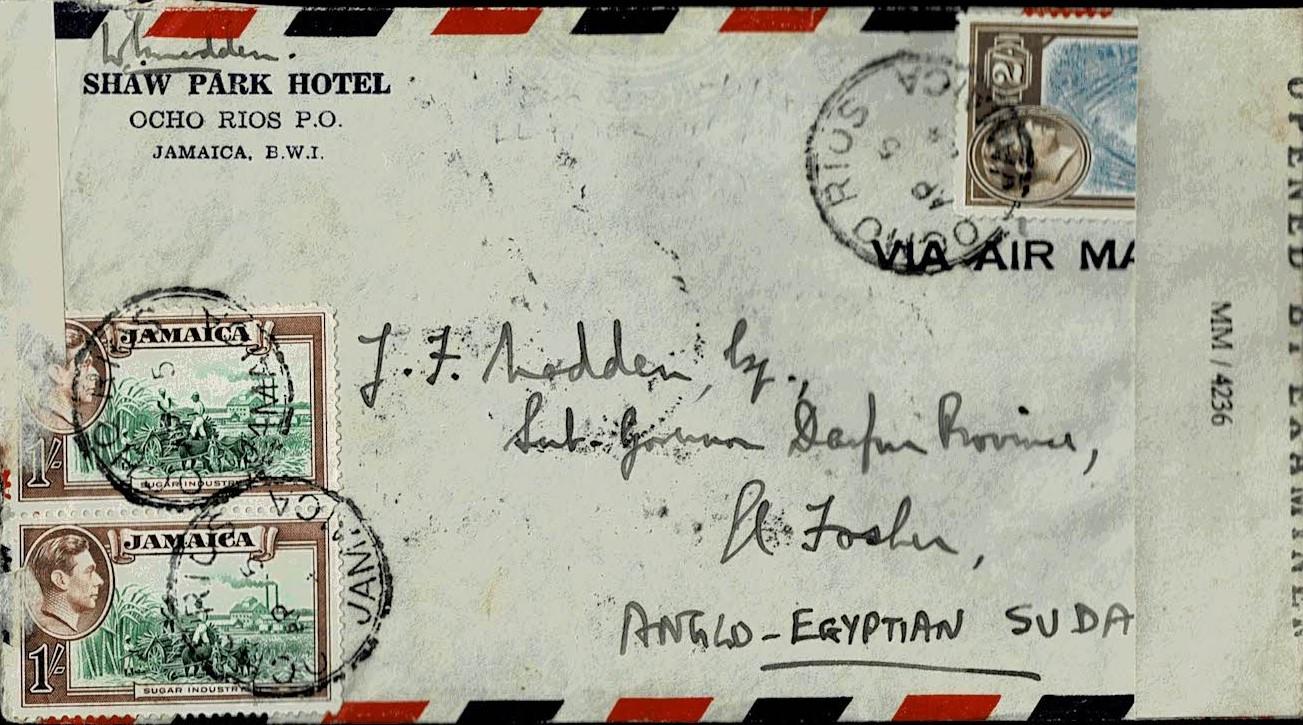 W. Madden.
SHAW PARK HOTEL
OCHO RIOS P.O.
JAMAICA, B.W.I.
2/-
OCHO RIOS
AP
5
VIA AIR MA
JAMAICA
1/-
SUGAR INDUSTRY
JAMAICA
1/-
SUGAR INDUSTRY
RIOS
JAM
J. F. Madden, Esq.,
Sub-Governor Darfur Province,
El Fasher,
ANGLO-EGYPTIAN SUDA
MM / 4236
OPENED BY EXAMINER